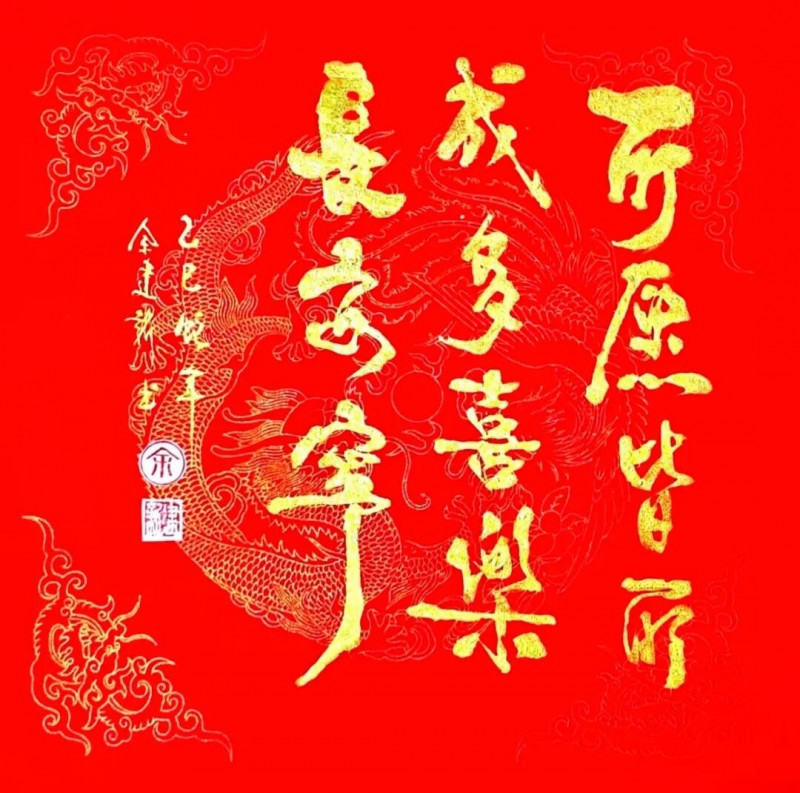 所愿皆所
成多喜樂
長安寧
乙巳蛇年
余建新书
余